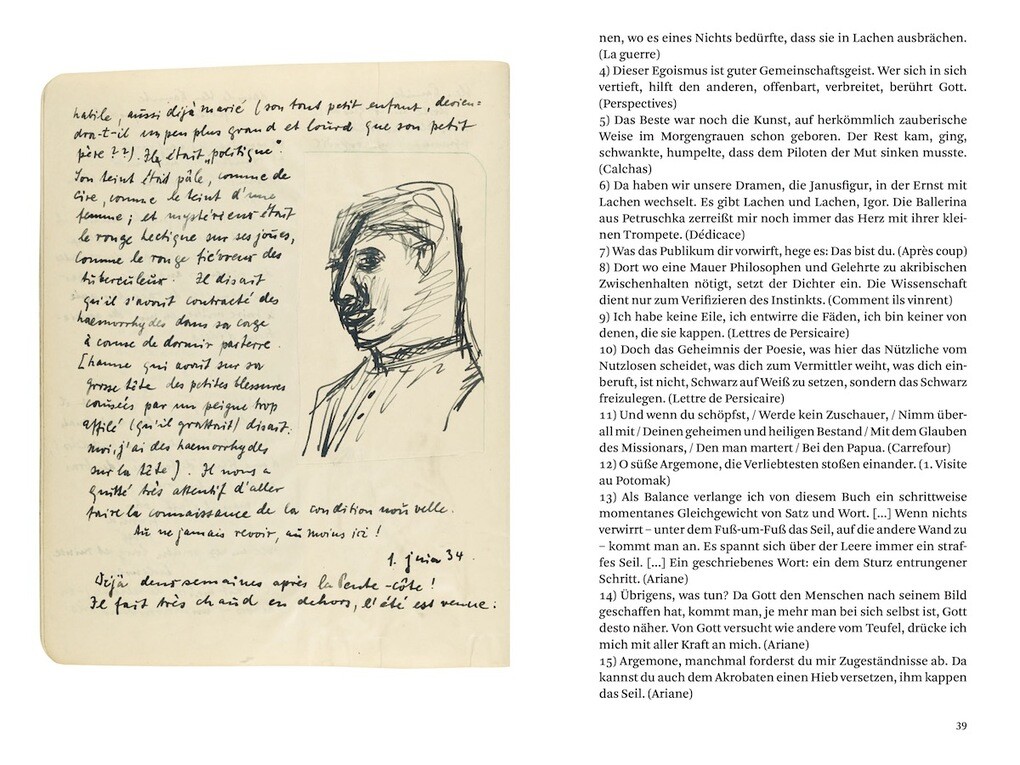 habile, aussi déjà marié (son tout petit enfant, devien=
dra-t-il un peu plus grand et lourd que son petit
père??). Il était „politique".
Son teint était pâle, comme de
cire, comme le teint d'une
femme; et mystérieux était
le rouge hectique sur ses joues,
comme le rouge fiévreux des
tuberculeux. Il disait
qu'il s'avait contracté des
haemorrhydes dans sa cage
à cause de dormir parterre.
[hanne qui avait sur sa
grosse tête des petites blessures
causées par un peigne trop
affilé (qu'il grattait) disait:
moi, j'ai des haemorrhydes
sur la tête]. Il nous a
quitté très attentif d'aller
faire la connaissance de la condition nouvelle.
Au ne jamais revoir, au moins ici!
1. juin 34.
Déjà deux semaines après la Pente-côte!
Il fait très chaud en dehors, l'été est venue:
nen, wo es eines Nichts bedürfte, dass sie in Lachen ausbrächen.
(La guerre)
4) Dieser Egoismus ist guter Gemeinschaftsgeist. Wer sich in sich
vertieft, hilft den anderen, offenbart, verbreitet, berührt Gott.
(Perspectives)
5) Das Beste war noch die Kunst, auf herkömmlich zauberische
Weise im Morgengrauen schon geboren. Der Rest kam, ging,
schwankte, humpelte, dass dem Piloten der Mut sinken musste.
(Calchas)
6) Da haben wir unsere Dramen, die Janusfigur, in der Ernst mit
Lachen wechselt. Es gibt Lachen und Lachen, Igor. Die Ballerina
aus Petruschka zerreißt mir noch immer das Herz mit ihrer klei-
nen Trompete. (Dédicace)
7) Was das Publikum dir vorwirft, hege es: Das bist du. (Après coup)
8) Dort wo eine Mauer Philosophen und Gelehrte zu akribischen
Zwischenhalten nötigt, setzt der Dichter ein. Die Wissenschaft
dient nur zum Verifizieren des Instinkts. (Comment ils vinrent)
9) Ich habe keine Eile, ich entwirre die Fäden, ich bin keiner von
denen, die sie kappen. (Lettres de Persicaire)
10) Doch das Geheimnis der Poesie, was hier das Nützliche vom
Nutzlosen scheidet, was dich zum Vermittler weiht, was dich ein-
beruft, ist nicht, Schwarz auf Weiß zu setzen, sondern das Schwarz
freizulegen. (Lettre de Persicaire)
11) Und wenn du schöpfst, / Werde kein Zuschauer, / Nimm über-
all mit / Deinen geheimen und heiligen Bestand / Mit dem Glauben
des Missionars, / Den man martert / Bei den Papua. (Carrefour)
12) O süße Argemone, die Verliebtesten stoßen einander. (1. Visite
au Potomak)
13) Als Balance verlange ich von diesem Buch ein schrittweise
momentanes Gleichgewicht von Satz und Wort. [...] Wenn nichts
verwirrt – unter dem Fuß-um-Fuß das Seil, auf die andere Wand zu
– kommt man an. Es spannt sich über der Leere immer ein straf-
fes Seil. [...] Ein geschriebenes Wort: ein dem Sturz entrungener
Schritt. (Ariane)
14) Übrigens, was tun? Da Gott den Menschen nach seinem Bild
geschaffen hat, kommt man, je mehr man bei sich selbst ist, Gott
desto näher. Von Gott versucht wie andere vom Teufel, drücke ich
mich mit aller Kraft an mich. (Ariane)
15) Argemone, manchmal forderst du mir Zugeständnisse ab. Da
kannst du auch dem Akrobaten einen Hieb versetzen, ihm kappen
das Seil. (Ariane)
39